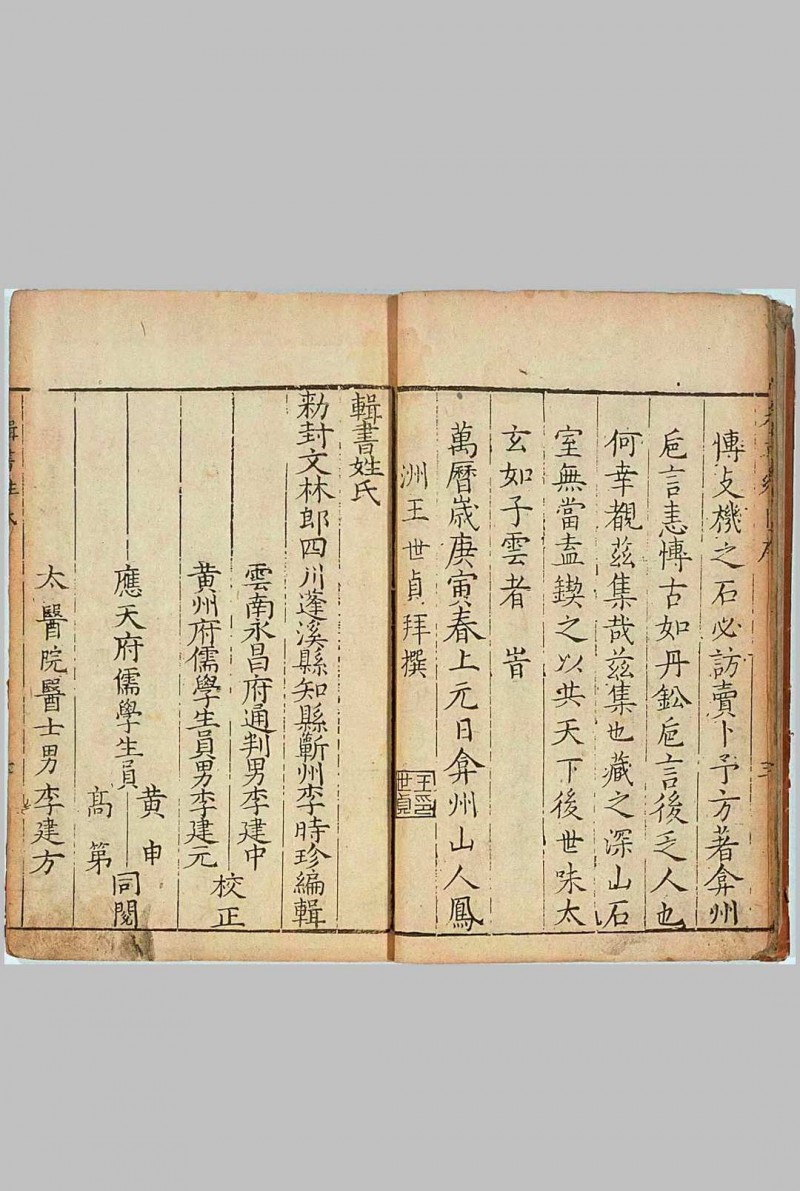 博支機之石必訪賣卜予方著弇州
巵言恚博古如丹鈆巵言後乏人也
何幸覩茲集哉茲集也藏之深山石
室無當盍鍥之以共天下後世味太
玄如子雲者 旹
萬曆歲庚寅春上元日弇州山人鳳
洲王世貞拜撰
輯書姓氏
勑封文林郎四川蓬溪縣知縣蘄州李時珍編輯
雲南永昌府通判男李建中
黄州府儒學生員男李建元
校正
應天府儒學生員
黄申
髙第
同閱
太醫院醫士男李建方
輯書姓氏